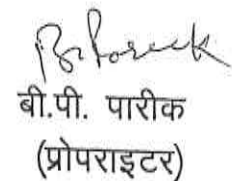 B.Pareek
बी.पी. पारीक
(प्रोपराइटर)